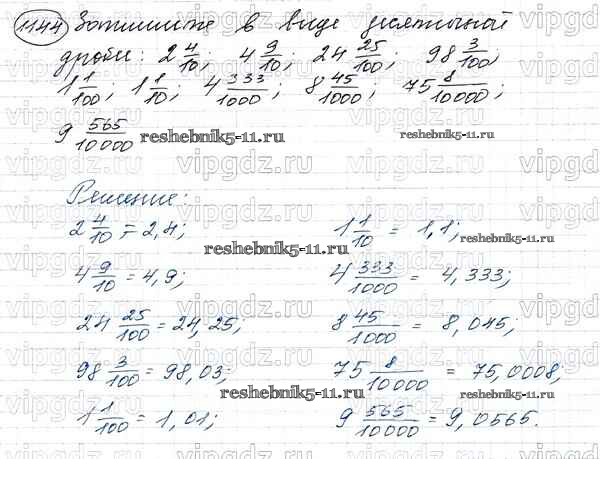 1144 Запишите в виде десятичной
дроби: 2 4/10; 4 9/10; 24 25/100; 98 3/100;
1 1/100; 1 1/10; 4 333/1000; 8 45/1000; 75 8/10000;
9 565/10000 reshebnik5-11.ru reshebnik5-11.ru
Решение:
2 4/10 = 2,4; 1 1/10 = 1,1;
reshebnik5-11.ru reshebnik5-11.ru
4 9/10 = 4,9; 4 333/1000 = 4,333;
24 25/100 = 24,25; 8 45/1000 = 8,045;
98 3/100 = 98,03; 75 8/10000 = 75,0008;
reshebnik5-11.ru reshebnik5-11.ru
1 1/100 = 1,01; 9 565/10000 = 9,0565.
vipgdz.ru